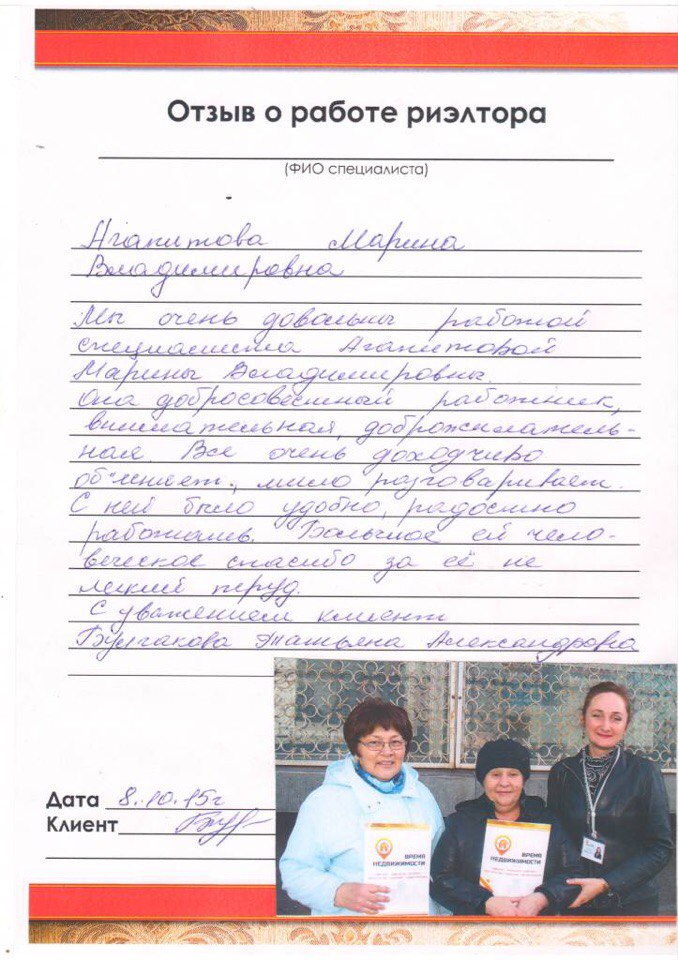 Отзыв о работе риэлтора
(ФИО специалиста)
Агапитова Марина
Владимировна
Мы очень довольны работой
специалиста Агапитовой
Марины Владимировны.
Она добросовестный работник,
внимательная, доброжелатель-
ная. Все очень доходчиво
объясняет, мило разговаривает.
С ней было удобно, радостно
работать. Большое ей чело-
веческое спасибо за её не
легкий труд.
С уважением клиент
Булгакова Татьяна Александровна
Дата 8.10.15г
Клиент
ВРЕМЯ
НЕДВИЖИМОСТИ
ВРЕМЯ
НЕДВИЖИМОСТИ